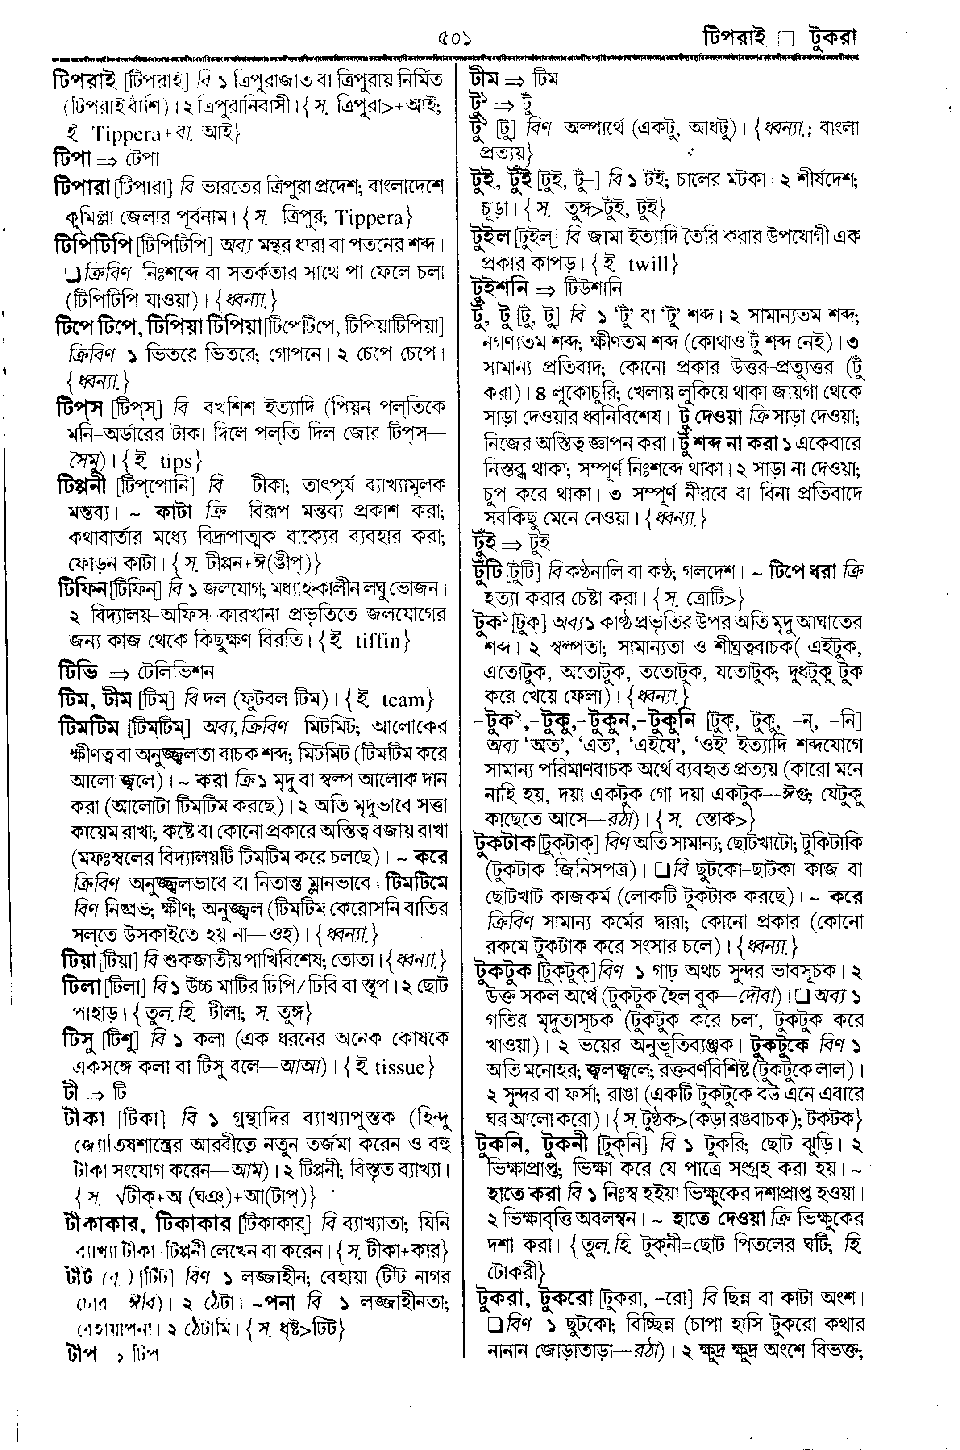 ৫০১
টিপরাই □ টুকরা
টিপরাই [টিপরাই] বি ১ ত্রিপুরাজাত বা ত্রিপুরায় নির্মিত
(টিপরাই বাঁশি)। ২ ত্রিপুরানিবাসী। {স. ত্রিপুরা>+আই;
ই Tippera+বা. আই}
টিপা ⇒ টেপা
টিপারা [টিপারা] বি ভারতের ত্রিপুরা প্রদেশ; বাংলাদেশে
কুমিল্লা জেলার পূর্বনাম। {স. ত্রিপুর; Tippera}
টিপিটিপি [টিপিটিপি] অব্য মন্থর ধারা বা পতনের শব্দ।
❑ ক্রিবিণ নিঃশব্দে বা সতর্কতার সাথে পা ফেলে চলা
(টিপিটিপি যাওয়া)। {ধ্বন্যা.}
টিপে টিপে, টিপিয়া টিপিয়া [টিপেটিপে, টিপিয়াটিপিয়া]
ক্রিবিণ ১ ভিতরে ভিতরে; গোপনে। ২ চেপে চেপে।
{ধ্বন্যা.}
টিপস [টিপ্‌স্] বি বখশিশ ইত্যাদি (পিয়ন পল্‌তিকে
মনি-অর্ডারের টাকা দিলে পল্‌তি দিল জোর টিপ্‌স—
সৈমু)। {ই tips}
টিপ্পনী [টিপ্‌পোনি] বি টীকা; তাৎপর্য ব্যাখ্যামূলক
মন্তব্য। ~ কাটা ক্রি বিরূপ মন্তব্য প্রকাশ করা;
কথাবার্তার মধ্যে বিদ্রূপাত্মক বাক্যের ব্যবহার করা;
ফোড়ন কাটা। {স. টীপ্পন+ঈ(ঙীপ্)}
টিফিন [টিফিন্] বি ১ জলযোগ; মধ্যাহ্নকালীন লঘু ভোজন।
২ বিদ্যালয়-অফিস কারখানা প্রভৃতিতে জলযোগের
জন্য কাজ থেকে কিছুক্ষণ বিরতি। {ই tiffin}
টিভি ⇒ টেলিভিশন
টিম, টীম [টিম্] বি দল (ফুটবল টিম)। {ই team}
টিমটিম [টিম্‌টিম্] অব্য, ক্রিবিণ মিটমিট; আলোকের
ক্ষীণত্ব বা অনুজ্জ্বলতা বাচক শব্দ; মিটমিট (টিমটিম করে
আলো জ্বলে)। ~ করা ক্রি ১ মৃদু বা স্বল্প আলোক দান
করা (আলোটা টিমটিম করছে)। ২ অতি মৃদুভাবে সত্তা
কায়েম রাখা; কষ্টে বা কোনো প্রকারে অস্তিত্ব বজায় রাখা
(মফঃস্বলের বিদ্যালয়টি টিমটিম করে চলছে)। ~ করে
ক্রিবিণ অনুজ্জ্বলভাবে বা নিতান্ত ম্লানভাবে। টিমটিমে
বিণ নিষ্প্রভ; ক্ষীণ; অনুজ্জ্বল (টিমটিম কেরোসনি বাতির
সল্‌তে উসকাইতে হয় না—ওহ)। {ধ্বন্যা.}
টিয়া [টিয়া] বি শুকজাতীয় পাখিবিশেষ; তোতা। {ধ্বন্যা.}
টিলা [টিলা] বি ১ উচ্চ মাটির ঢিপি/ঢিবি বা স্তূপ। ২ ছোট
পাহাড়। {তুল. হি. টীলা; স. তুঙ্গ}
টিসু [টিশু] বি ১ কলা (এক ধরনের অনেক কোষকে
একসঙ্গে কলা বা টিসু বলে—আআ)। {ই tissue}
টী ⇒ টি
টীকা [টিকা] বি ১ গ্রন্থাদির ব্যাখ্যাপুস্তক (হিন্দু
জ্যোতিষশাস্ত্রের আরবীতে নতুন তর্জমা করেন ও বহু
টীকা সংযোগ করেন—আম)। ২ টিপ্পনী; বিস্তৃত ব্যাখ্যা।
{স. √টীক্+অ (ঘঞ্)+আ(টাপ্)}
টীকাকার, টিকাকার [টিকাকার্] বি ব্যাখ্যাতা; যিনি
ব্যাখ্যা টীকা টিপ্পনী লেখেন বা করেন। {স. টীকা+কার}
টীট [টিট্] বিণ ১ লজ্জাহীন; বেহায়া (টীট নাগর
২ ঠেটা। ~পনা বি ১ লজ্জাহীনতা;
বেহায়াপনা। ২ ঠেটামি। {স. ধৃষ্ট>ঢিট}
টীপ ⇒ টিপ
টীম ⇒ টিম
টু১ ⇒ টুঁ
টু২ [টু] বিণ অল্পার্থে (একটু, আধটু)। {ধ্বন্যা.; বাংলা
প্রত্যয়}
টুই, টুঁই [টুই, টুঁ–] বি ১ টই; চালের মটকা। ২ শীর্ষদেশ;
চূড়া। {স. তুঙ্গ>টুঁই, টুই}
টুইল [টুইল্] বি জামা ইত্যাদি তৈরি করার উপযোগী এক
প্রকার কাপড়। {ই twill}
টুইশনি ⇒ টিউশনি
টুঁ, টু [টুঁ, টু] বি ১ ‘টু’ বা ‘টু’ শব্দ। ২ সামান্যতম শব্দ;
নগণ্যতম শব্দ; ক্ষীণতম শব্দ (কোথাও টুঁ শব্দ নেই)। ৩
সামান্য প্রতিবাদ; কোনো প্রকার উত্তর-প্রত্যুত্তর (টুঁ
করা)। ৪ লুকোচুরি; খেলায় লুকিয়ে থাকা জায়গা থেকে
সাড়া দেওয়ার ধ্বনিবিশেষ। টু দেওয়া ক্রি সাড়া দেওয়া;
নিজের অস্তিত্ব জ্ঞাপন করা। টুঁ শব্দ না করা ১ একেবারে
নিস্তব্ধ থাকা; সম্পূর্ণ নিঃশব্দে থাকা। ২ সাড়া না দেওয়া;
চুপ করে থাকা। ৩ সম্পূর্ণ নীরবে বা বিনা প্রতিবাদে
সবকিছু মেনে নেওয়া। {ধ্বন্যা.}
টুঁই ⇒ টুই
টুঁটি [টুঁটি] বি কণ্ঠনালি বা কণ্ঠ; গলদেশ। ~ টিপে ধরা ক্রি
হত্যা করার চেষ্টা করা। {স. ত্রোটি>}
টুক১ [টুক্] অব্য ১ কাষ্ঠ প্রভৃতির উপর অতি মৃদু আঘাতের
শব্দ। ২ স্বল্পতা; সামান্যতা ও শীঘ্রত্ববাচক( এইটুক,
এতোটুক, অতোটুক, ততোটুক, যতোটুক; দুধটুকু টুক
করে খেয়ে ফেলা)। {ধ্বন্যা.}
–টুক২,–টুকু,–টুকুন,–টুকুনি [টুক্, টুকু, –ন্, –নি]
অব্য ‘অত’, ‘এত’, ‘এইযে’, ‘ওই’ ইত্যাদি শব্দযোগে
সামান্য পরিমাণবাচক অর্থে ব্যবহৃত প্রত্যয় (কারো মনে
নাহি হয়, দয়া একটুক গো দয়া একটুক—ঈগু; যেটুকু
কাছেতে আসে—রঠা)। {স. স্তোক>}
টুকটাক [টুক্‌টাক্] বিণ অতি সামান্য; ছোটখাটো; টুকিটাকি
(টুকটাক জিনিসপত্র)। ❑ বি ছুটকো-ছাটকা কাজ বা
ছোটখাট কাজকর্ম (লোকটি টুকটাক করছে)। ~ করে
ক্রিবিণ সামান্য কর্মের দ্বারা; কোনো প্রকার (কোনো
রকমে টুকটাক করে সংসার চলে)। {ধ্বন্যা.}
টুকটুক [টুক্‌টুক্] বিণ ১ গাঢ় অথচ সুন্দর ভাবসূচক। ২
উক্ত সকল অর্থে (টুকটুক হৈল বুক—দৌবা)। ❑ অব্য ১
গতির মৃদুতাসূচক (টুকটুক করে চলা, টুকটুক করে
খাওয়া)। ২ ভয়ের অনুভূতিব্যঞ্জক। টুকটুকে বিণ ১
অতি মনোহর; জ্বলজ্বলে; রক্তবর্ণবিশিষ্ট (টুকটুকে লাল)।
২ সুন্দর বা ফর্সা; রাঙা (একটি টুকটুকে বউ এনে এবারে
ঘর আলো করো)। {স. টুণ্ঠক>(কড়া রঙবাচক); টকটক}
টুকনি, টুকনী [টুক্‌নি] বি ১ টুকরি; ছোট ঝুড়ি। ২
ভিক্ষাপ্রাপ্ত; ভিক্ষা করে যে পাত্রে সংগ্রহ করা হয়। ~
হাতে করা বি ১ নিঃস্ব হইয়া ভিক্ষুকের দশাপ্রাপ্ত হওয়া।
২ ভিক্ষাবৃত্তি অবলম্বন। ~ হাতে দেওয়া ক্রি ভিক্ষুকের
দশা করা। {তুল. হি. টুকনী=ছোট পিতলের ঘটি; হি.
টোকরী}
টুকরা, টুকরো [টুকরা, –রো] বি ছিন্ন বা কাটা অংশ।
❑ বিণ ১ ছুটকো; বিচ্ছিন্ন (চাপা হাসি টুকরো কথার
নানান জোড়াতাড়া—রঠা)। ২ ক্ষুদ্র ক্ষুদ্র অংশে বিভক্ত;